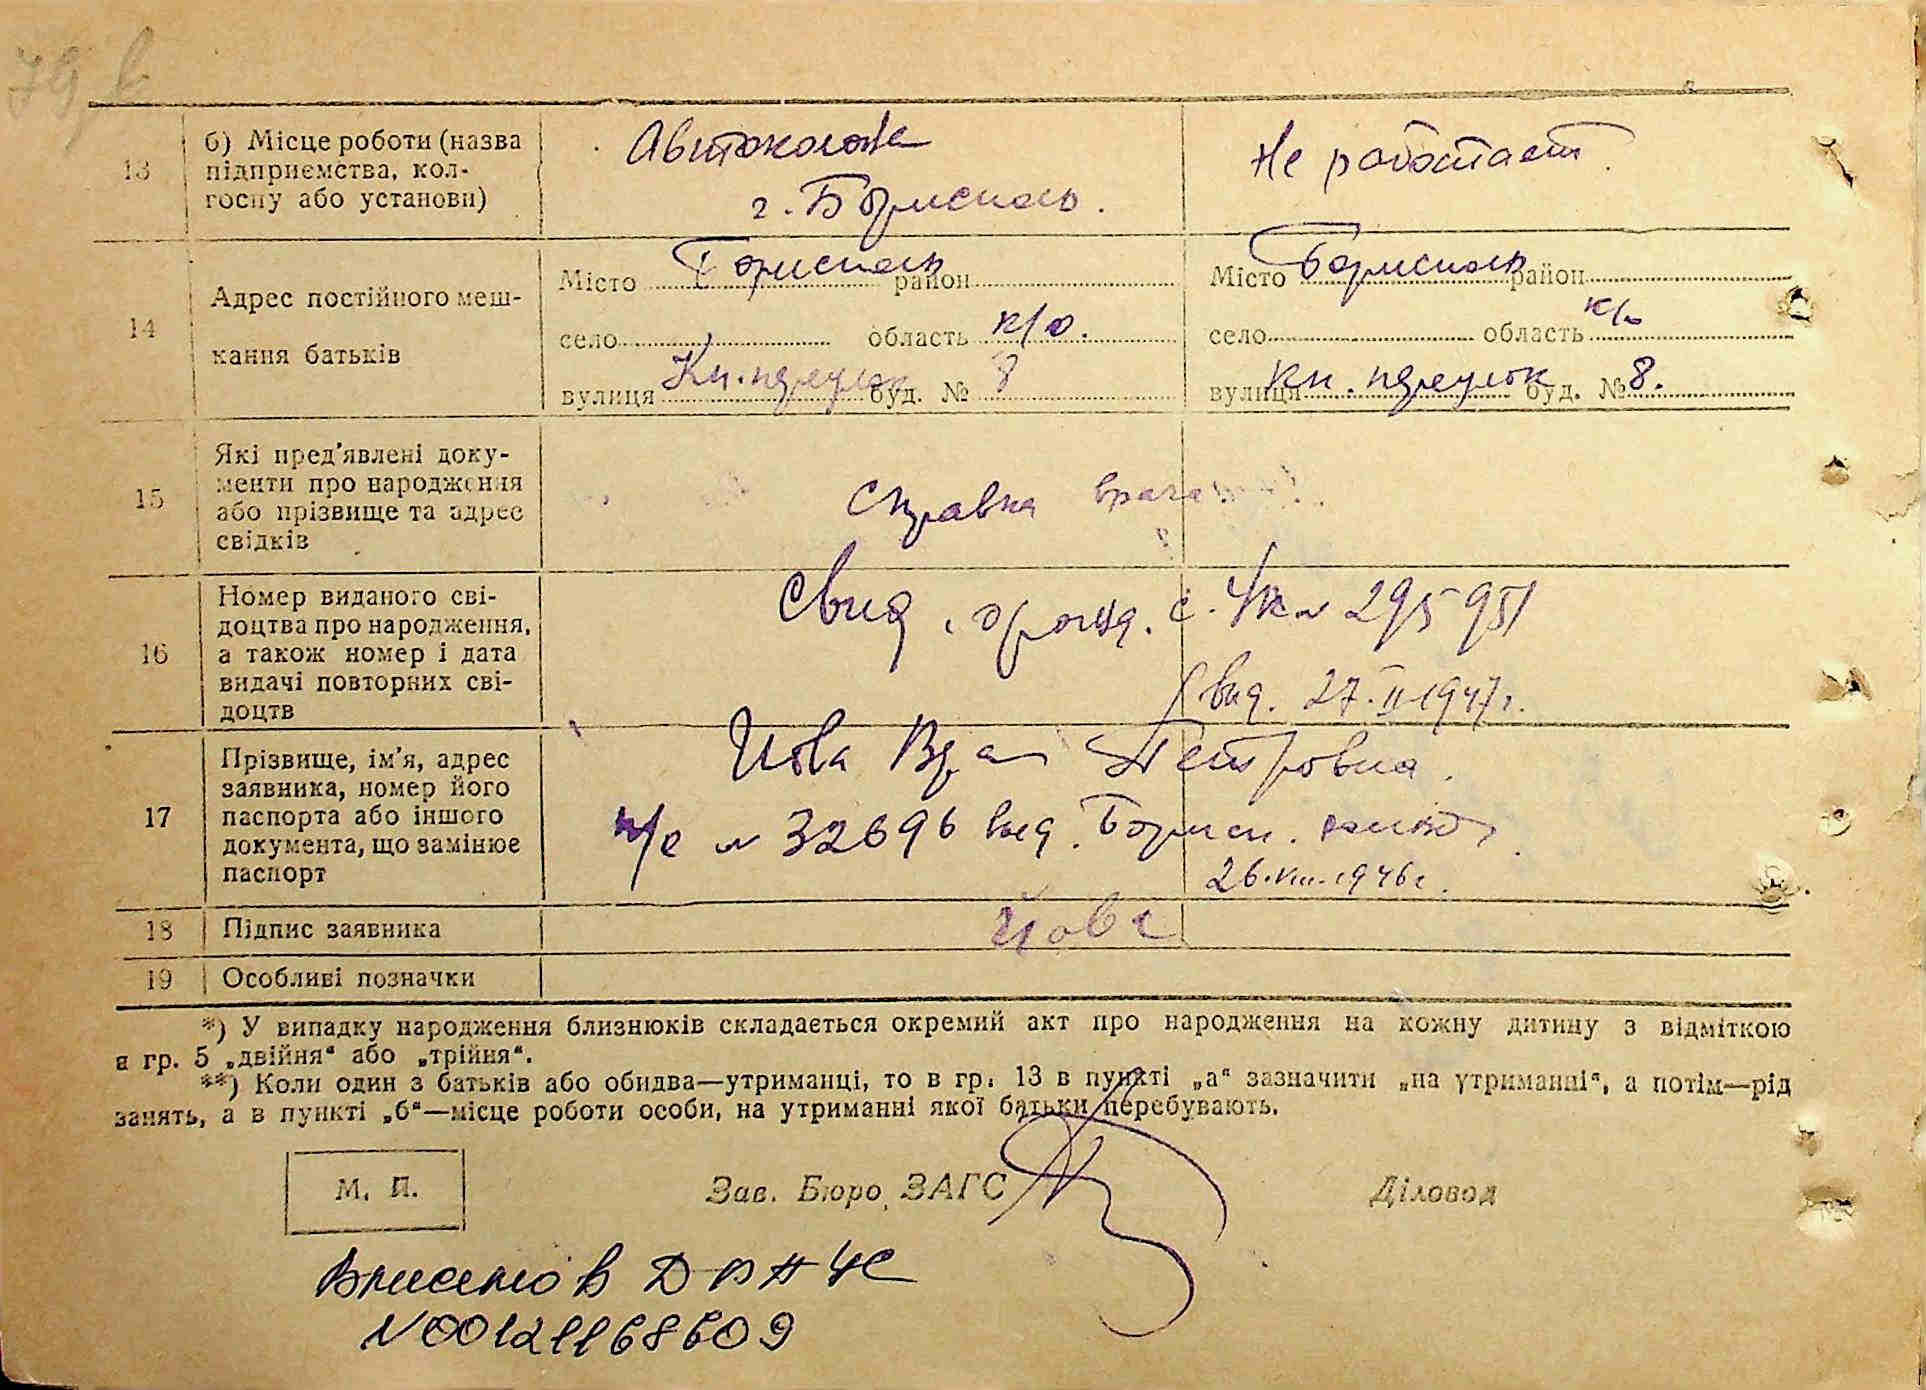 79 в
13
б) Місце роботи (назва
підприємства, кол-
госпу або установи)
Автоколона
г. Борисполь.
Не работает.
14
Адрес постійного меш-
кання батьків
Місто Борисполь район
село область к/о.
вулиця Кн. переулок буд. № 8
Місто Борисполь район
село область к/о
вулиця Кн. переулок буд. № 8.
15
Які пред'явлені доку-
менти про народження
або прізвище та адрес
свідків
Справка врача
16
Номер виданого сві-
доцтва про народження,
а також номер і дата
видачі повторних сві-
доцтв
Свид. о рожд. с. УК № 295951
выд. 27-II-1947 г.
17
Прізвище, ім'я, адрес
заявника, номер його
паспорта або іншого
документа, що замінює
паспорт
Иова Вера Петровна.
п/с № 32696 выд. Борисп.
26.VIII-1946 г.
18
Підпис заявника
Йова
19
Особливі позначки
*) У випадку народження близнюків складається окремий акт про народження на кожну дитину з відміткою
в гр. 5 „двійня“ або „трійня“.
**) Коли один з батьків або обидва—утриманці, то в гр. 13 в пункті „а“ зазначити „на утриманні“, а потім—рід
занять, а в пункті „б“—місце роботи особи, на утриманні якої батьки перебувають.
М. П.
Зав. Бюро ЗАГС
Діловод
Вписано в ДРАЦС
N00121168609